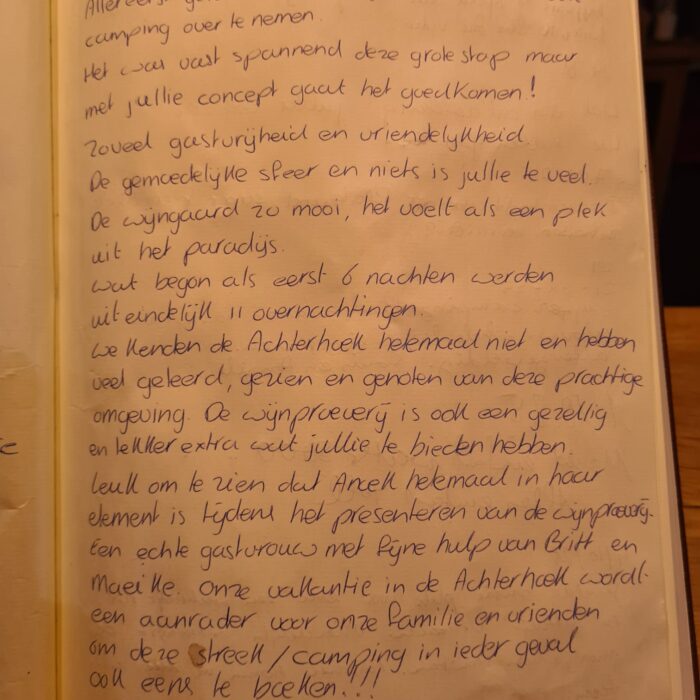 Allereerst
camping over te nemen.
Het was vast spannend deze grote stap maar
met jullie concept gaat het goedkomen!
Zoveel gastvrijheid en vriendelykheid.
De gemoedelyke sfeer en niets is jullie te veel.
De wijngaard zo mooi, het voelt als een plek
uit het paradijs.
wat begon als eerst 6 nachten werden
uiteindelijk 11 overnachtingen.
we kenden de Achterhoek helemaal niet en hebben
veel geleerd, gezien en genoten van deze prachtige
omgeving. De wijnproeverij is ook een gezellig
en lekker extra wat jullie te bieden hebben.
Leuk om te zien dat helemaal in haar
element is tijdens het presenteren van de wijnproeverij.
Een echte gastvrouw met fijne hulp van Britt en
Maeike. Onze vakantie in de Achterhoek wordt
een aanrader voor onze familie en vrienden
om deze streek/camping in ieder geval
ook eens te boeken!!!